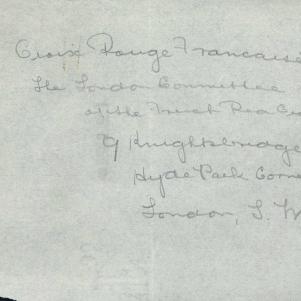 Croix Rouge Francaise
The London Committee
of the French Red Cr
9 Knightsbridge
Hyde Park Corne
London, S. W